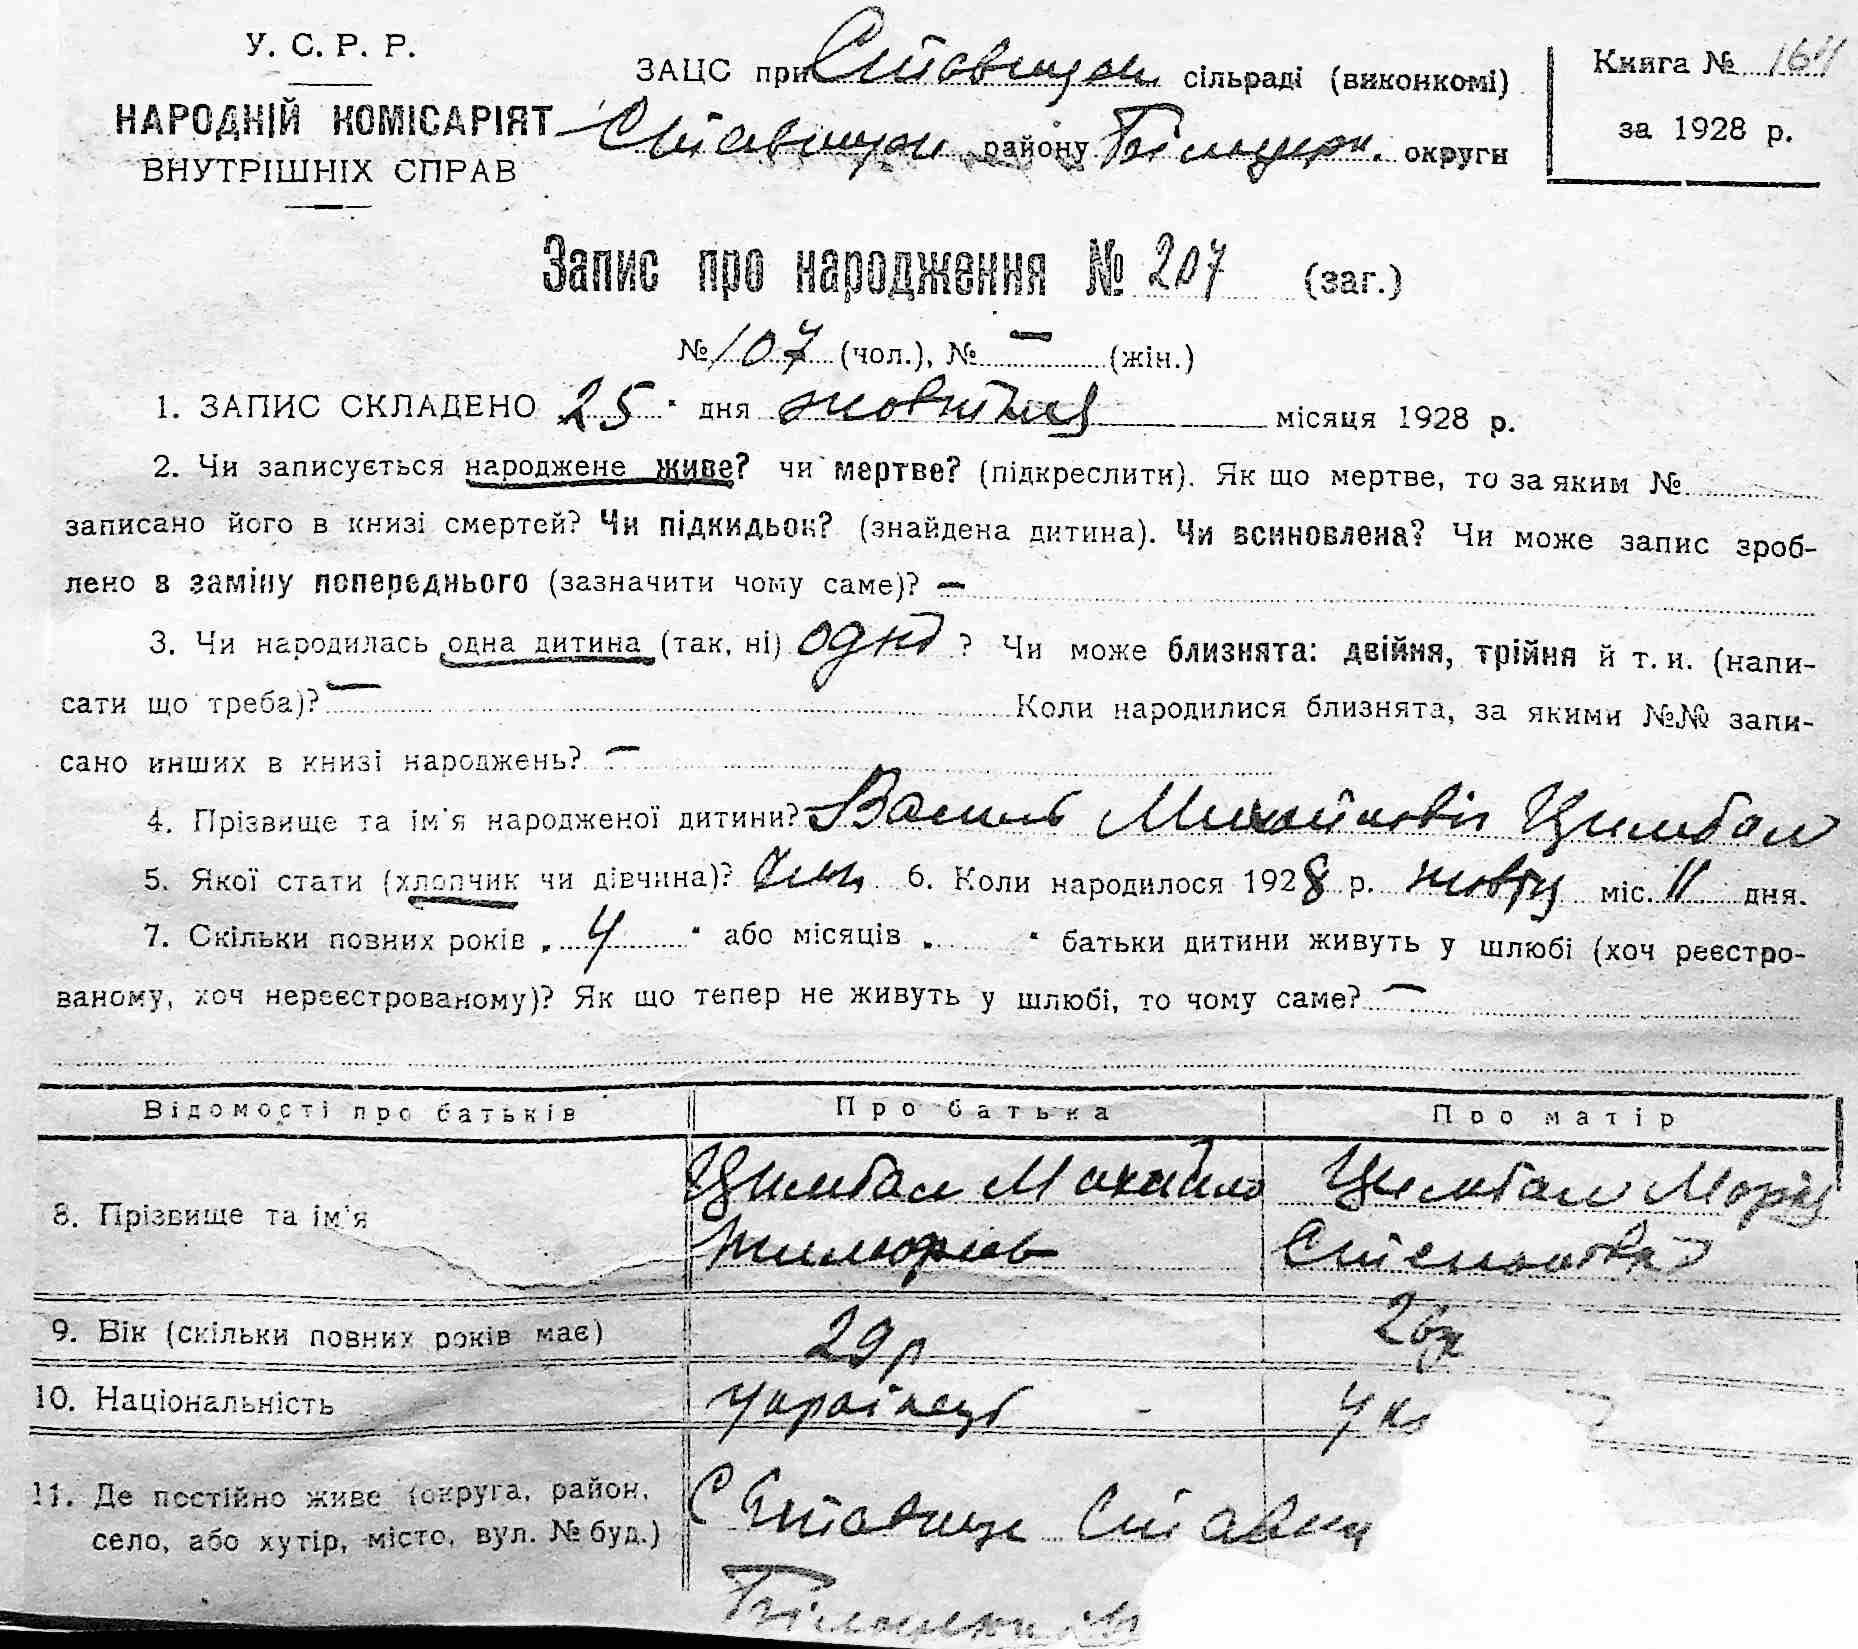 У. С. Р. Р.
НАРОДНІЙ КОМІСАРІЯТ
ВНУТРІШНІХ СПРАВ
ЗАЦС при Ставищан сільраді (виконкомі)
Ставищан району Білоцерк. округи
Книга № 164
за 1928 р.
Запис про народження № 207 (заг.)
№ 107 (чол.), № — (жін.)
1. ЗАПИС СКЛАДЕНО 25 " дня жовтня місяця 1928 р.
2. Чи записується народжене живе? чи мертве? (підкреслити). Як що мертве, то за яким №
записано його в книзі смертей? Чи підкидьок? (знайдена дитина). Чи всиновлена? Чи може запис зроб-
лено в заміну попереднього (зазначити чому саме)? —
3. Чи народилась одна дитина (так, ні) одна ? Чи може близнята: двійня, трійня й т. и. (напи-
сати що треба)? — Коли народилися близнята, за якими №№ запи-
сано инших в книзі народжень? —
4. Прізвище та ім'я народженої дитини? Василь Михайлович Цимбал
5. Якої стати (хлопчик чи дівчина)? 6. Коли народилося 1928 р. жовтн міс. 11 дня.
7. Скільки повних років „ 4 " або місяців „ " батьки дитини живуть у шлюбі (хоч реєстро-
ваному, хоч нереєстрованому)? Як що тепер не живуть у шлюбі, то чому саме? —
Відомості про батьків Про батька Про матір
8. Прізвище та ім'я
Цимбал Михайло
Цимбал Марія
Степанова
9. Вік (скільки повних років має) 29 р 26 р
10. Національність українець Ук
11. Де постійно живе (округа, район,
село, або хутір, місто, вул. № буд.)
С Ставище Ставищ